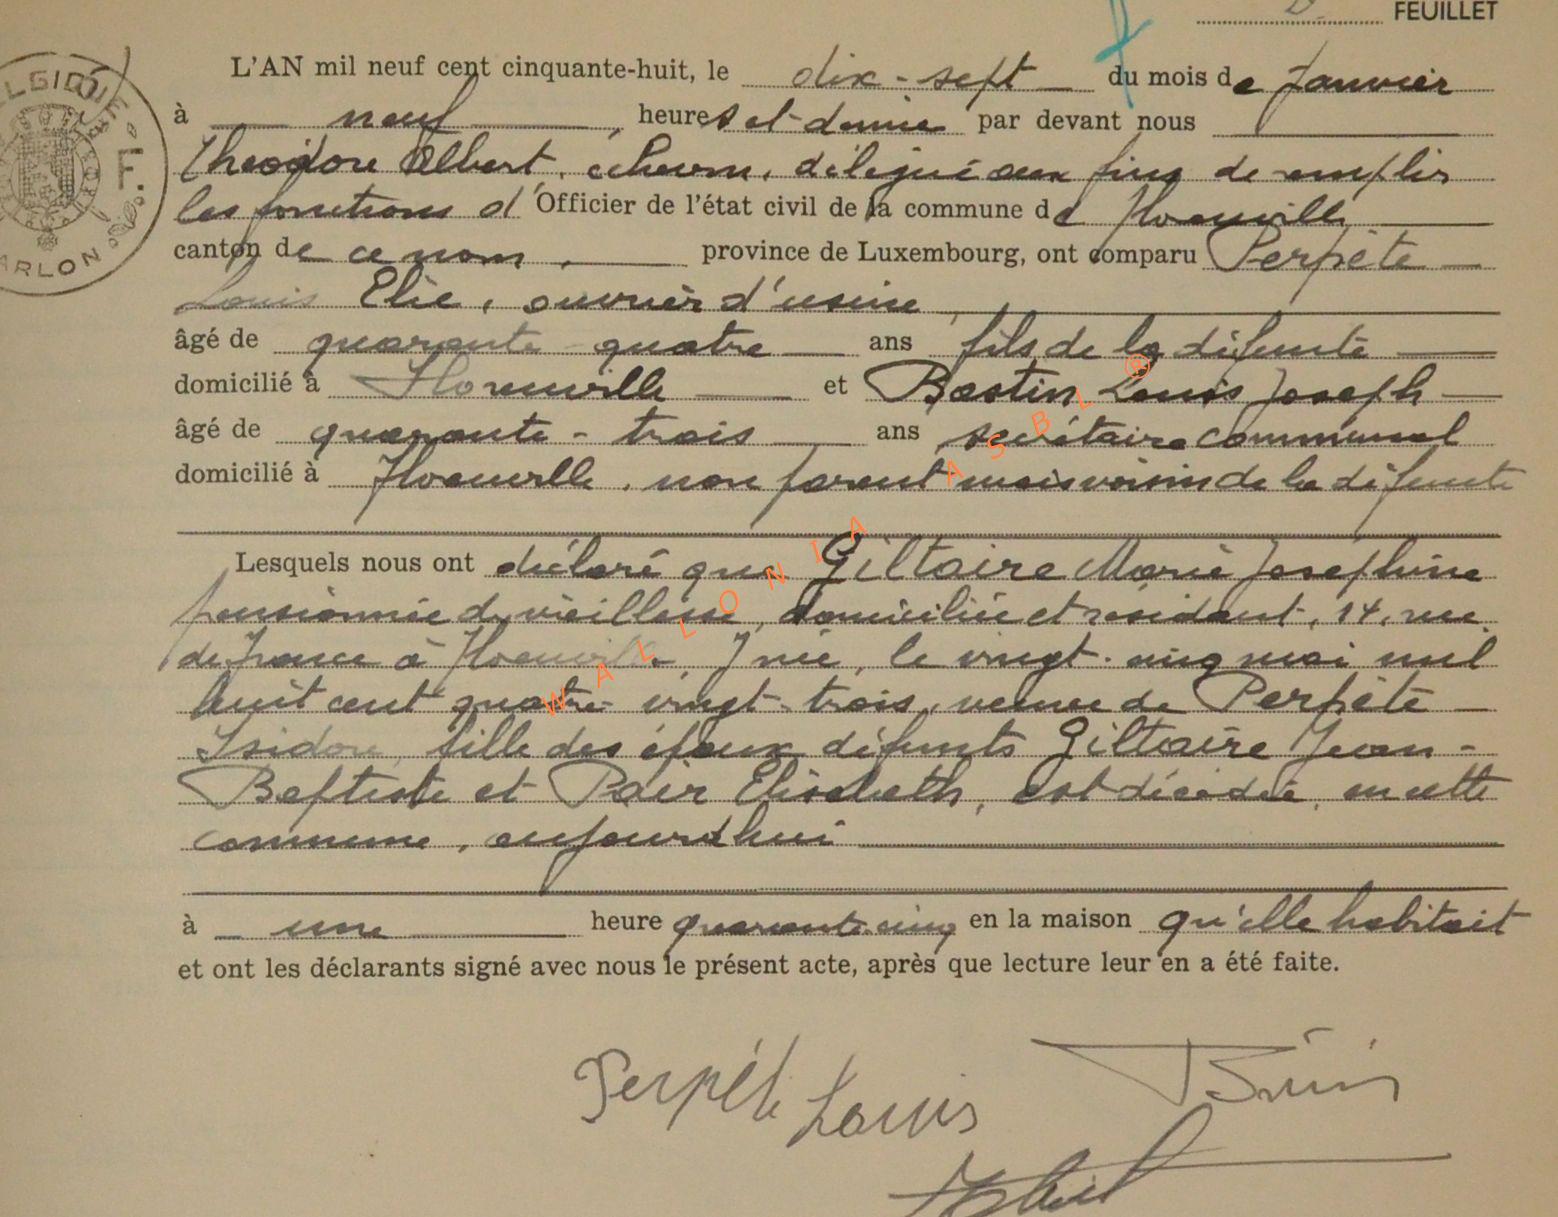 FEUILLET
BELGIQUE
F.
ARLON
L'AN mil neuf cent cinquante-huit, le dix-sept du mois de Janvier
à neuf heures et demie par devant nous
Théodore Albert, échevin, délégué aux fins de remplir
les fonctions d'Officier de l'état civil de la commune de Florenville
canton de ce nom, province de Luxembourg, ont comparu Perpète
Louis Elie, ouvrier d'usine,
âgé de quarante quatre ans fils de la défunte
domicilié à Florenville et Bastin Louis Joseph
âgé de quarante-trois ans, secrétaire communal
domicilié à Florenville, non parent mais voisin de la défunte
Lesquels nous ont déclaré que Giltaire Marie Joséphine
pensionnée de vieillesse, domiciliée et résidant, 14, rue
de France à Florenville y née, le vingt-cinq mai mil
huit cent quatre-vingt-trois, veuve de Perpète
Isidore, fille des époux défunts Giltaire Jean-
Baptiste et Pair Elisabeth, est décédée, en cette
commune, aujourd'hui
à une heure quarante-cinq en la maison qu'elle habitait
et ont les déclarants signé avec nous le présent acte, après que lecture leur en a été faite.
WALLONIA ASBL ®
Perpète Louis